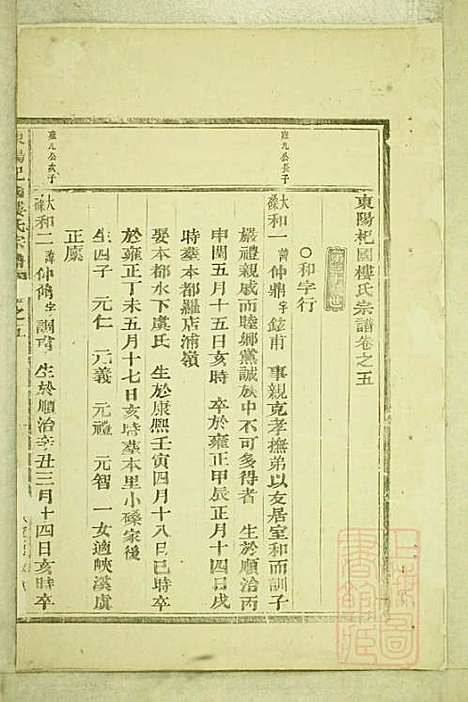 東陽杞國樓氏宗譜卷之五
○和字行
班九公長子
大磉和一 諱仲鼎字鉉甫 事親克孝撫弟以友居室和而訓子
嚴禮親戚而睦鄉黨誠族中不可多得者 生於順治丙
申閏五月十五日亥時 卒於雍正甲辰正月十四日戌
時葬本都羅店浦嶺
娶本都水下虞氏 生於康熙壬寅四月十八日巳時卒
於雍正丁未五月十七日亥時葬本里小磉家後
生四子 元仁 元義 元禮 元智 一女適峽溪虞
正廩
班九公次子
大磉和二 諱仲 字調 生於順治辛丑三月十四日亥時卒
東陽杞國樓氏宗譜 卷之五